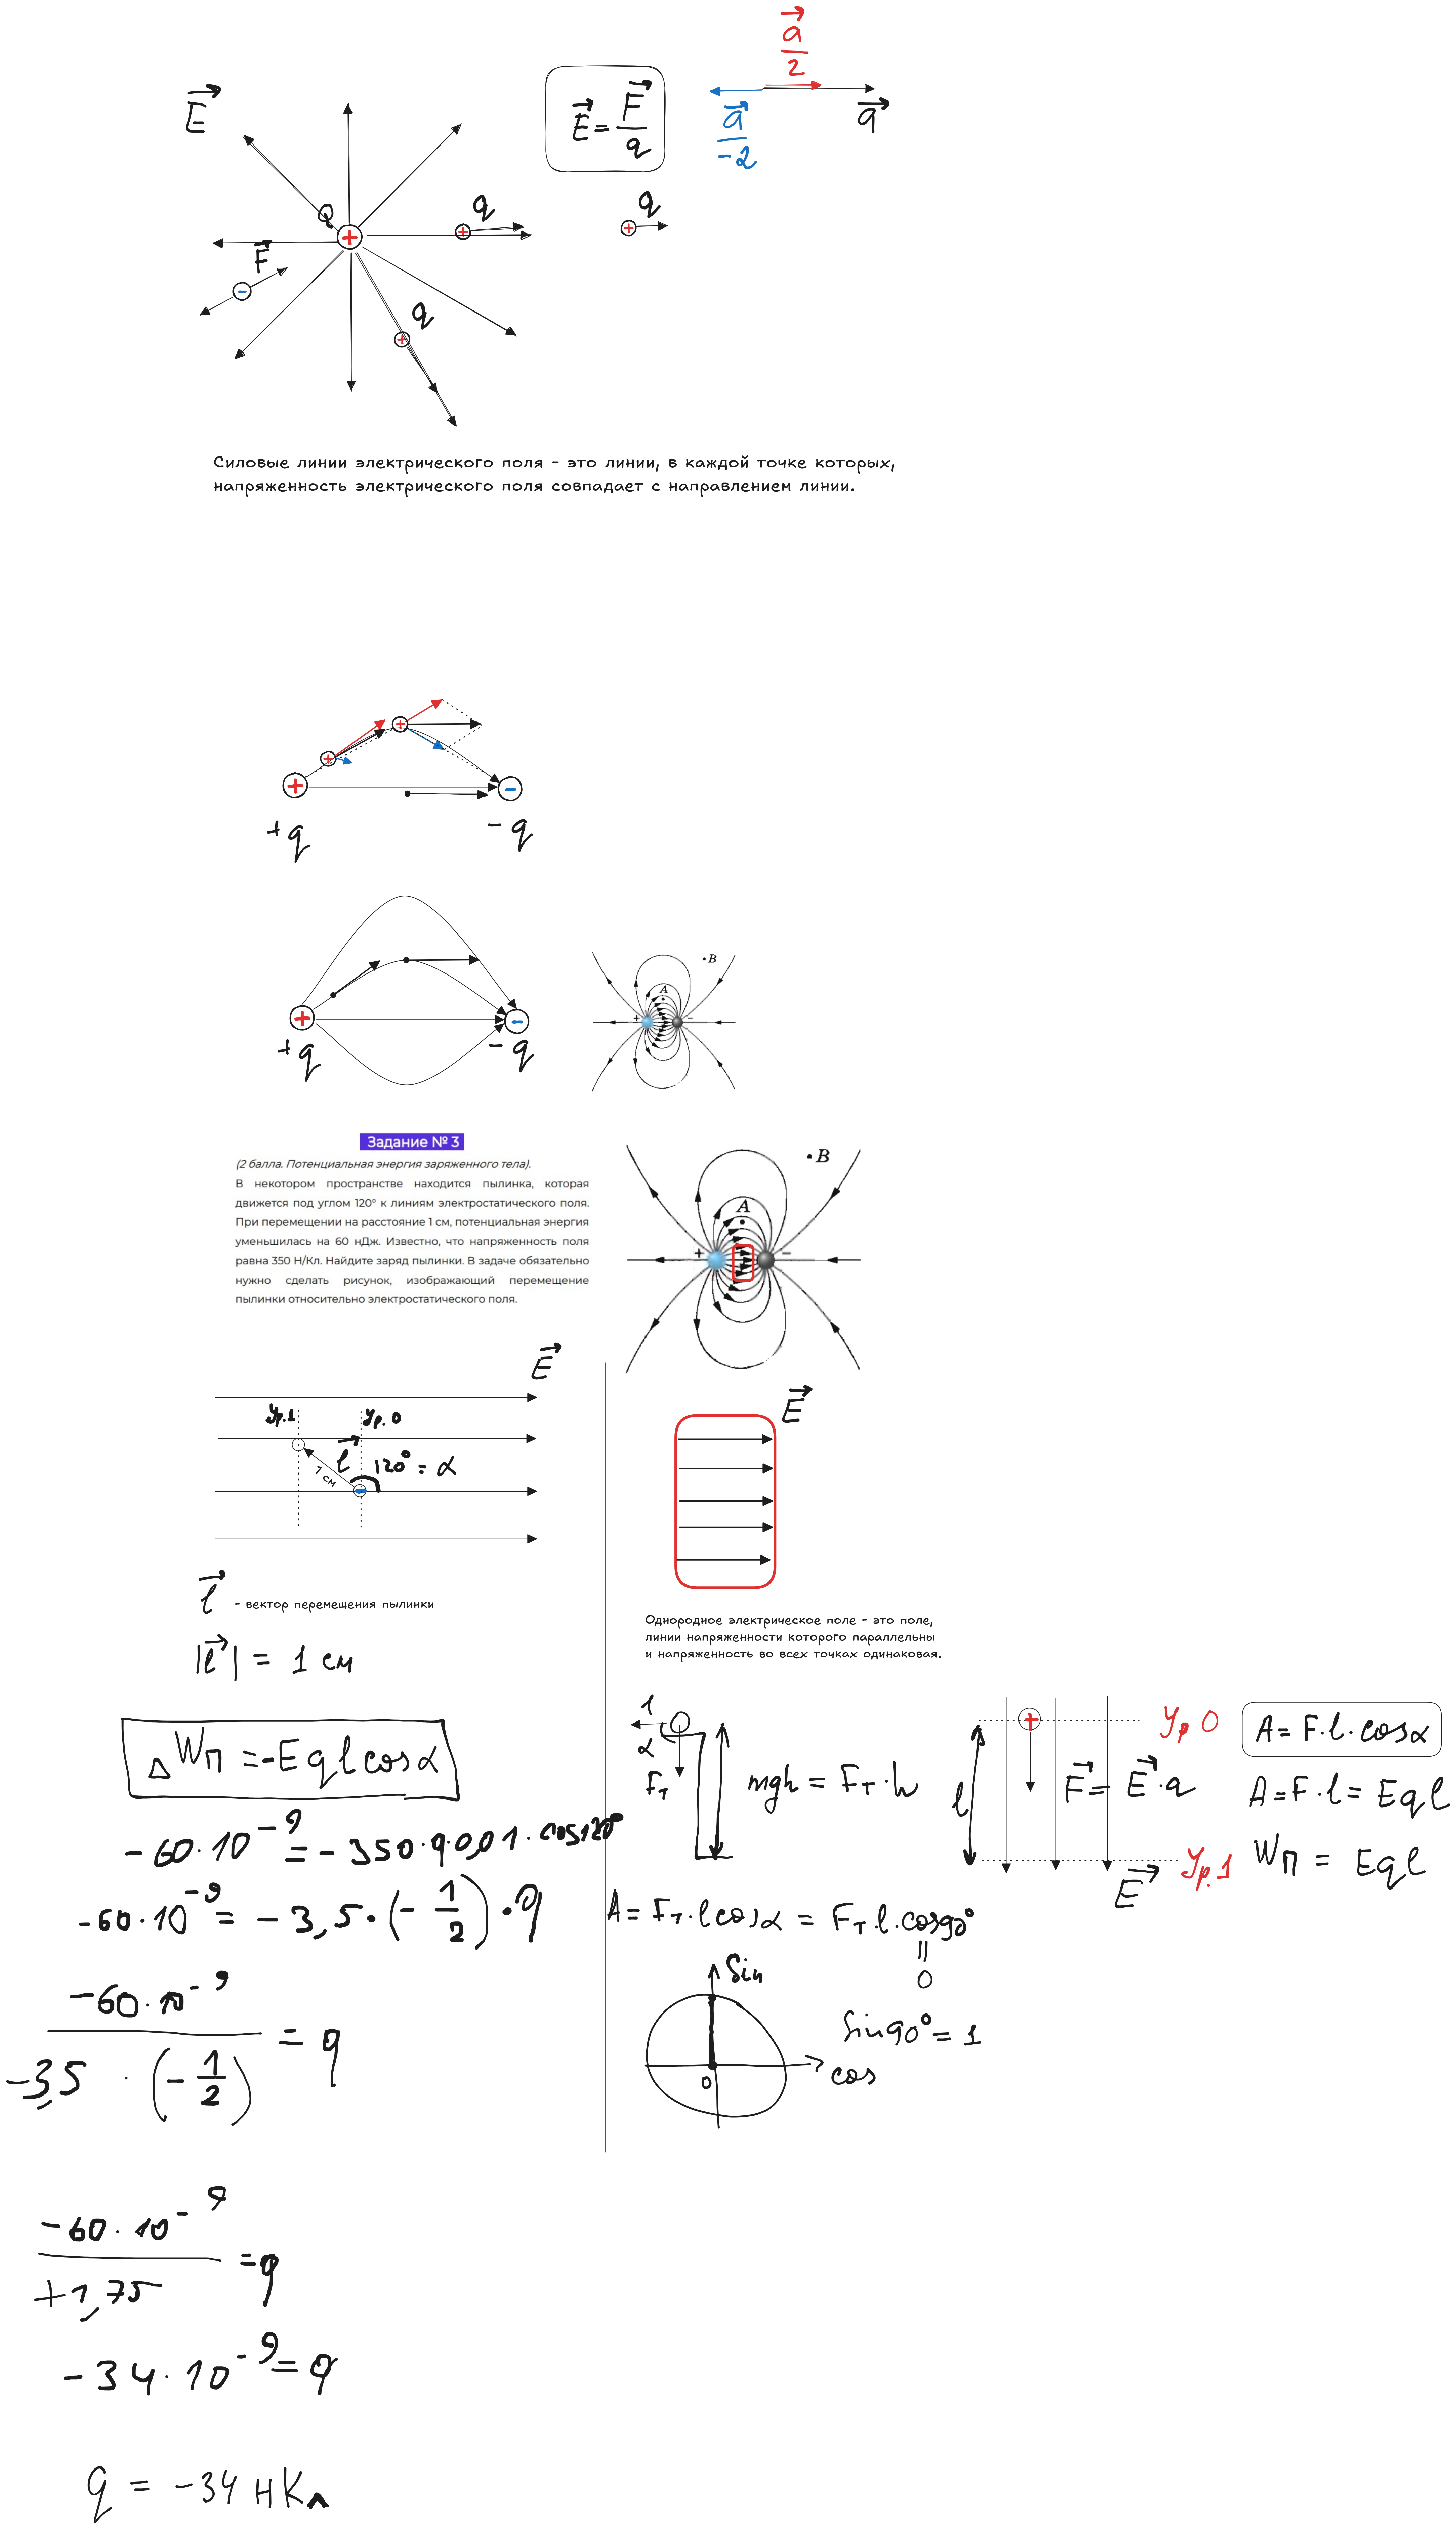 a/2
E
E = F/q
a/-2
a
Q
q
q
F
q
Силовые линии электрического поля - это линии, в каждой точке которых,
напряженность электрического поля совпадает с направлением линии.
+q
-q
+q
-q
A
B
+ -
Задание № 3
(2 балла. Потенциальная энергия заряженного тела).
В некотором пространстве находится пылинка, которая
движется под углом 120° к линиям электростатического поля.
При перемещении на расстояние 1 см, потенциальная энергия
уменьшилась на 60 нДж. Известно, что напряженность поля
равна 350 Н/Кл. Найдите заряд пылинки. В задаче обязательно
нужно сделать рисунок, изображающий перемещение
пылинки относительно электростатического поля.
A
B
+ -
E
Ур.1
Ур.0
l
120° = α
1 см
l - вектор перемещения пылинки
|l| = 1 см
ΔWп = -Eqlcosα
-60·10⁻⁹ = -350·q·0,01·cos120°
-60·10⁻⁹ = -3,5·(-1/2)·q
-60·10⁻⁹ / -3,5·(-1/2) = q
-60·10⁻⁹ / +1,75 = q
-34·10⁻⁹ = q
q = -34 нКл
E
Однородное электрическое поле - это поле,
линии напряженности которого параллельны
и напряженность во всех точках одинаковая.
l
α
Fт
mgh = Fт·h
A = Fт·lcosα = Fт·l·cos90°
0
Sin
Sin90° = 1
cos
0
l
Ур 0
F = E·q
Ур.1
E
A = F·l·cosα
A = F·l = Eql
Wп = Eql